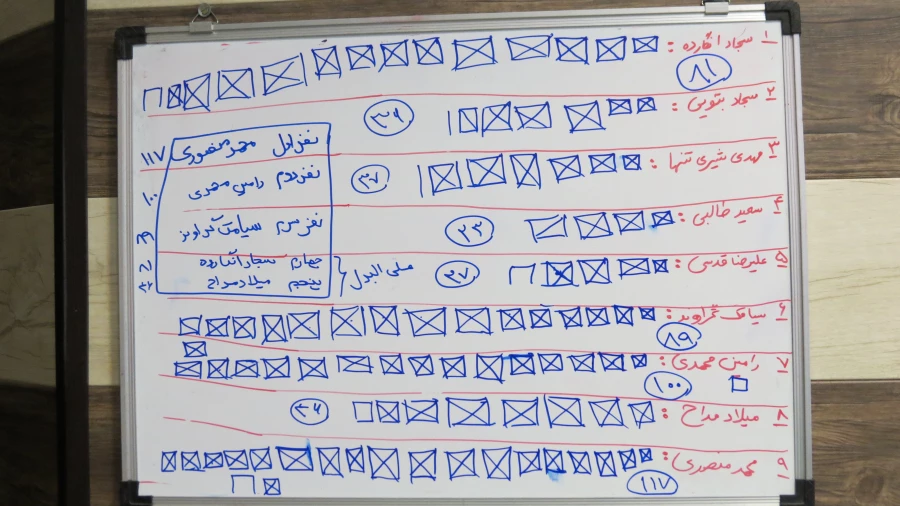 ۱ سجاد انگارده : ۸۱
۲ سجاد بتویی : ۳۹
۳ مهدی شیری تنها : ۳۷
۴ سعید طالبی : ۲۳
۵ علیرضا قدسی : ۲۷
۶ سیامک گراوند : ۸۹
۷ رامین محمدی : ۱۰۰
۸ میلاد مداح : ۳۶
۹ محمد منصوری : ۱۱۷
نفر اول محمد منصوری ۱۱۷
نفر دوم رامین محمدی ۱۰۰
نفر سوم سیامک گراوند ۸۹
چهارم سجاد انگارده ۸۱
پنجم میلاد مداح ۳۶
علی البدل